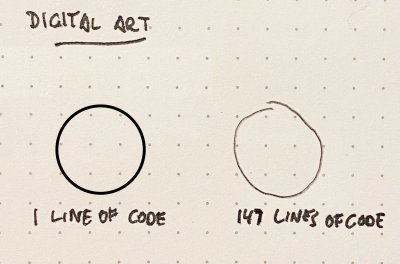 DIGITAL ART
1 LINE OF CODE
147 LINES OF CODE